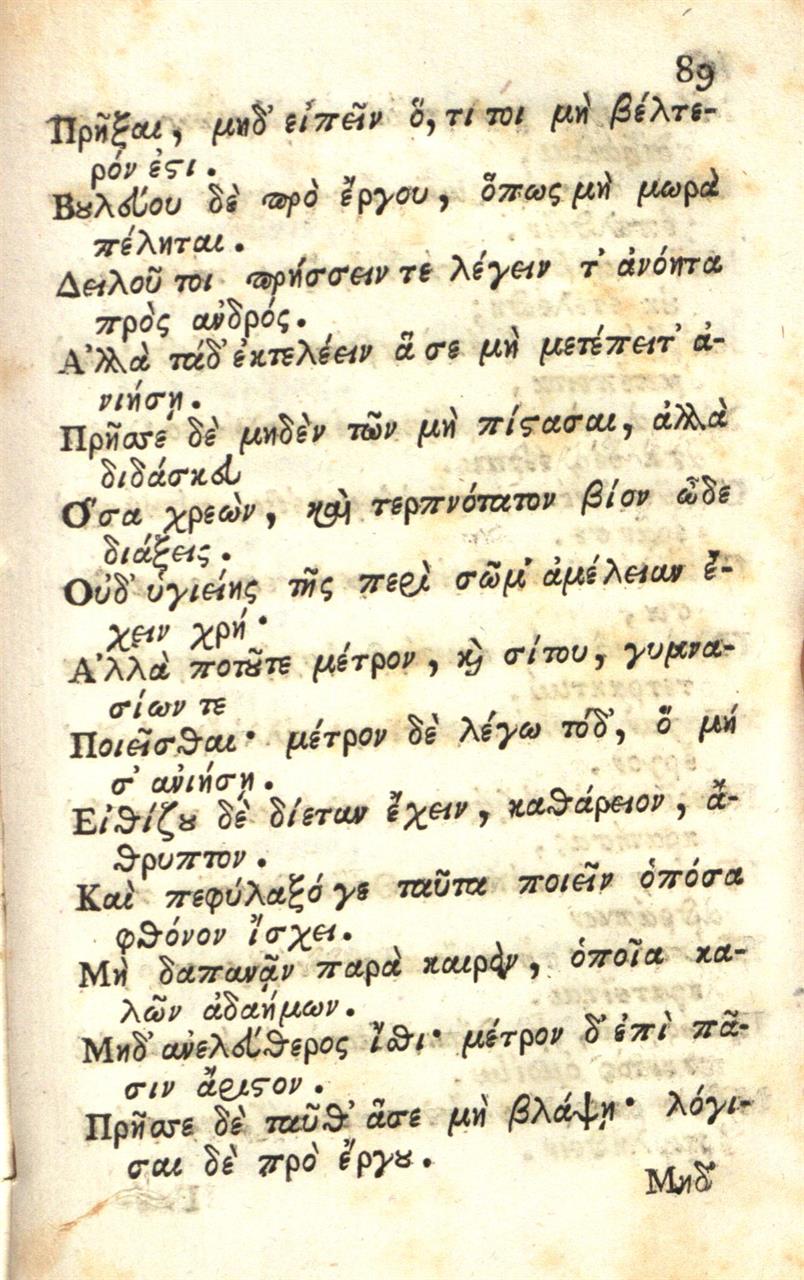 89
Πρῆξαι, μηδ' εἰπεῖν ὅ, τι τοι μὴ βέλτε-
ρόν ἐϛι.
Βȣλεύου δὲ πρὸ ἔργου, ὅπως μὴ μωρὰ
πέληται.
Δειλοῦ τοι πρήσσειν τε λέγειν τ' ἀνόητα
πρὸς ἀνδρός.
Α'λλὰ τάδ' ἐκτελέειν ἅ σε μὴ μετέπειτ' ἀ-
νιήσῃ.
Πρῆσσε δὲ μηδὲν τῶν μὴ πίϛασαι, ἀλλὰ
διδάσκευ
Ο῞σα χρεὼν, καὶ τερπνότατον βίον ὧδε
διάξεις.
Οὐδ' ὑγιείης τῆς περὶ σῶμ' ἀμέλειαν ἔ-
χειν χρή·
Α'λλὰ ποτοῦτε μέτρον, ϗ σίτου, γυμνα-
σίων τε
Ποιεῖσθαι· μέτρον δὲ λέγω τόδ', ὅ μή
σ' ἀνιήσῃ.
Εἰθίζȣ δὲ δίεταν ἔχειν, καθάρειον, ἄ-
θρυπτον.
Καὶ πεφύλαξό γε ταῦτα ποιεῖν ὁπόσα
φθόνον ἴσχει.
Μὴ δαπανᾷν παρὰ καιρὸν, ὁποῖα κα-
λῶν ἀδαήμων.
Μηδ' ἀνελεύθερος ἴθι· μέτρον δ' ἐπὶ πᾶ-
σιν ἄριϛον.
Πρῆσσε δὲ ταῦθ' ἅσε μὴ βλάψῃ· λόγι-
σαι δὲ πρὸ ἔργȣ.
Μηδ'